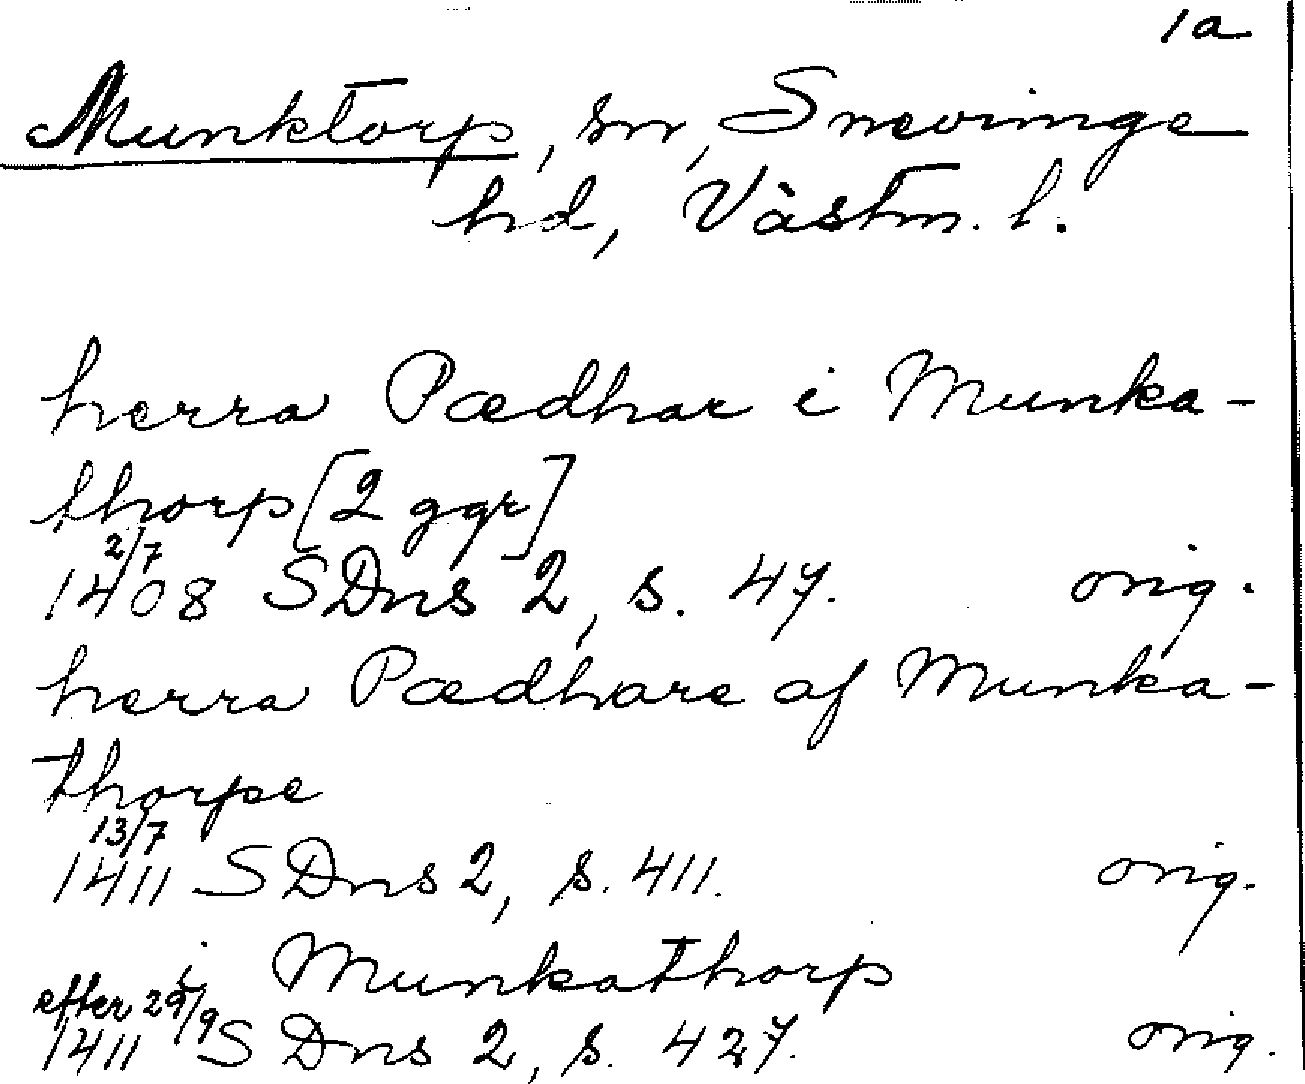 1a
Munktorp, sn, Snevinge
hd, Västm. l.
herra Pædhar i Munka-
thorp [2 ggr]
2/7
1408 SDns 2, s. 47. orig.
herra Pædhare af Munka-
thorpe
13/7
1411 SDns 2, s. 411. orig.
i Munkathorp
efter 29/9
1411 SDns 2, s. 427. orig.